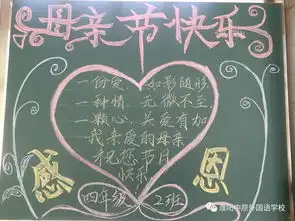 母亲节快乐
一份爱，如影随形
一种情，无微不至
一颗心，关爱有加
我亲爱的母亲
祝您节日
快乐
感
恩
四年级 2班
濮阳中原外国语学校